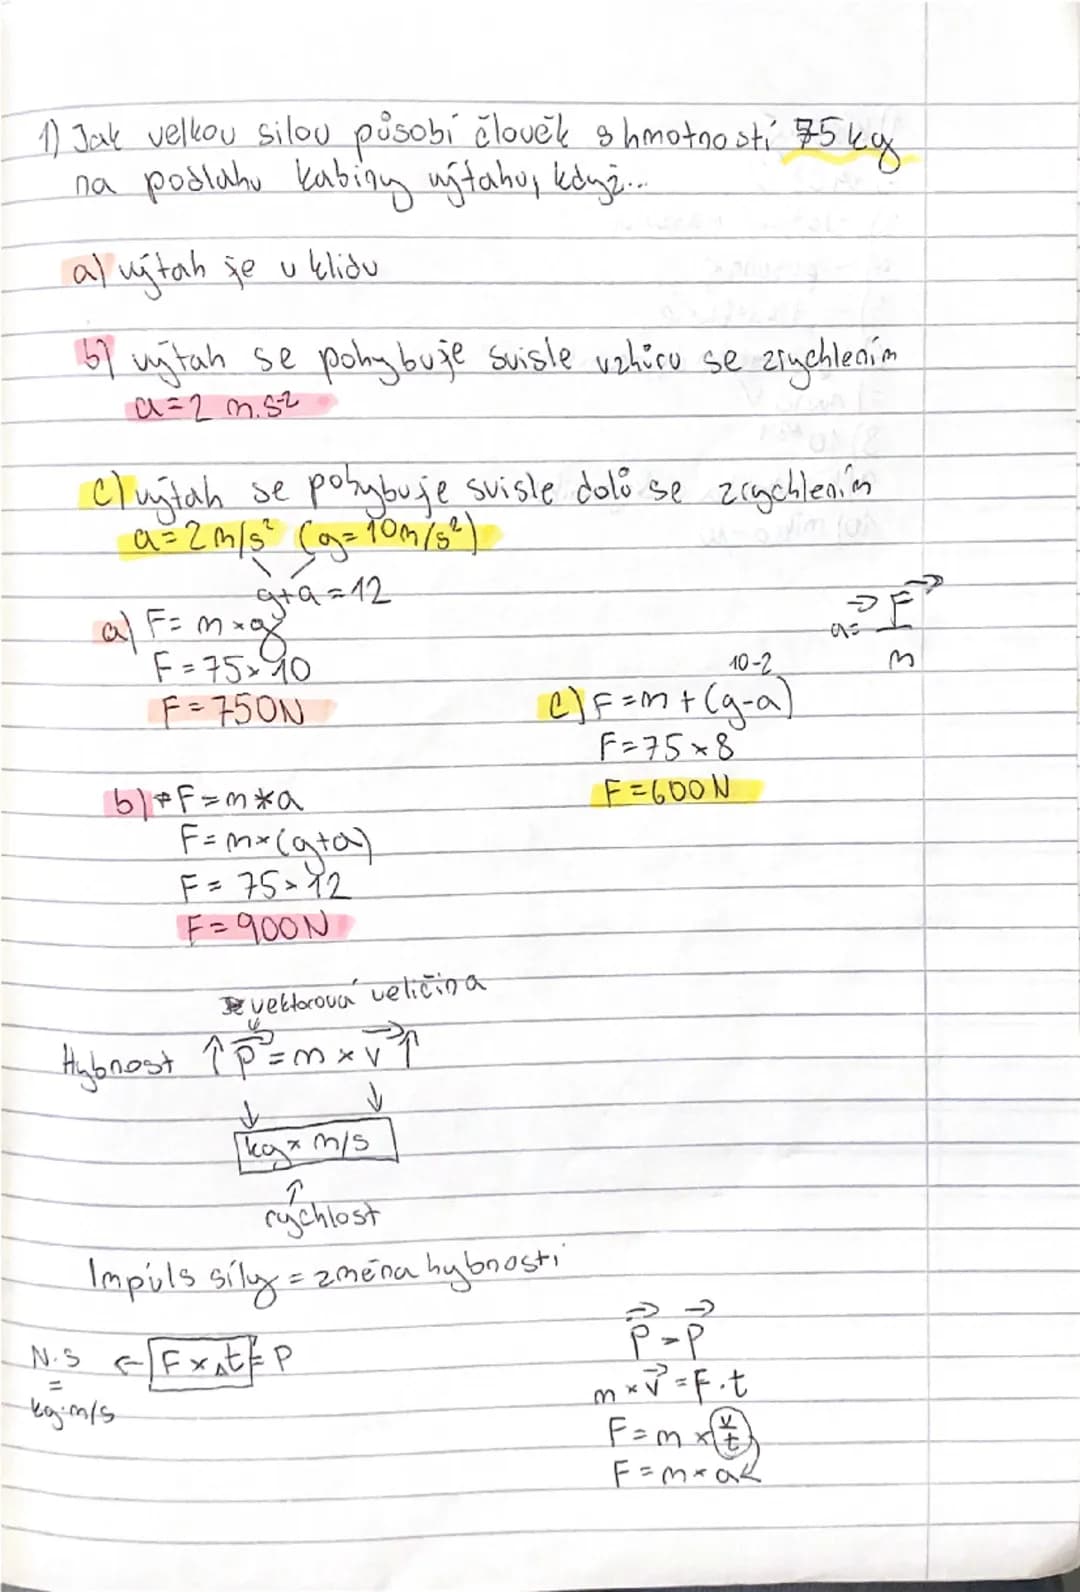 1) Jak velkou silou působí člověk s hmotností 75 kg
na podlahu kabiny výtahu, když...
a) výtah je v klidu
b) výtah se pohybuje svisle vzhůru se zrychlením
a=2 m.s-2
c) výtah se pohybuje svisle dolů se zrychlením
a=2m/s² (g=10m/s²)
g+a=12
a) F=m×g
F=75×10
F=750N
a= F
m
10-2
c) F=m+(g-a)
F=75×8
F=600N
b) F=m*a
F=m×(g+a)
F=75×12
F=900N
vektorová veličina
Hybnost ↑p=m×v↑
kg×m/s
rychlost
Impuls síly = změna hybnosti
N.s ← F×Δt = p
=
kg·m/s
p=p
m×v=F.t
F=m×v/t
F=m×a